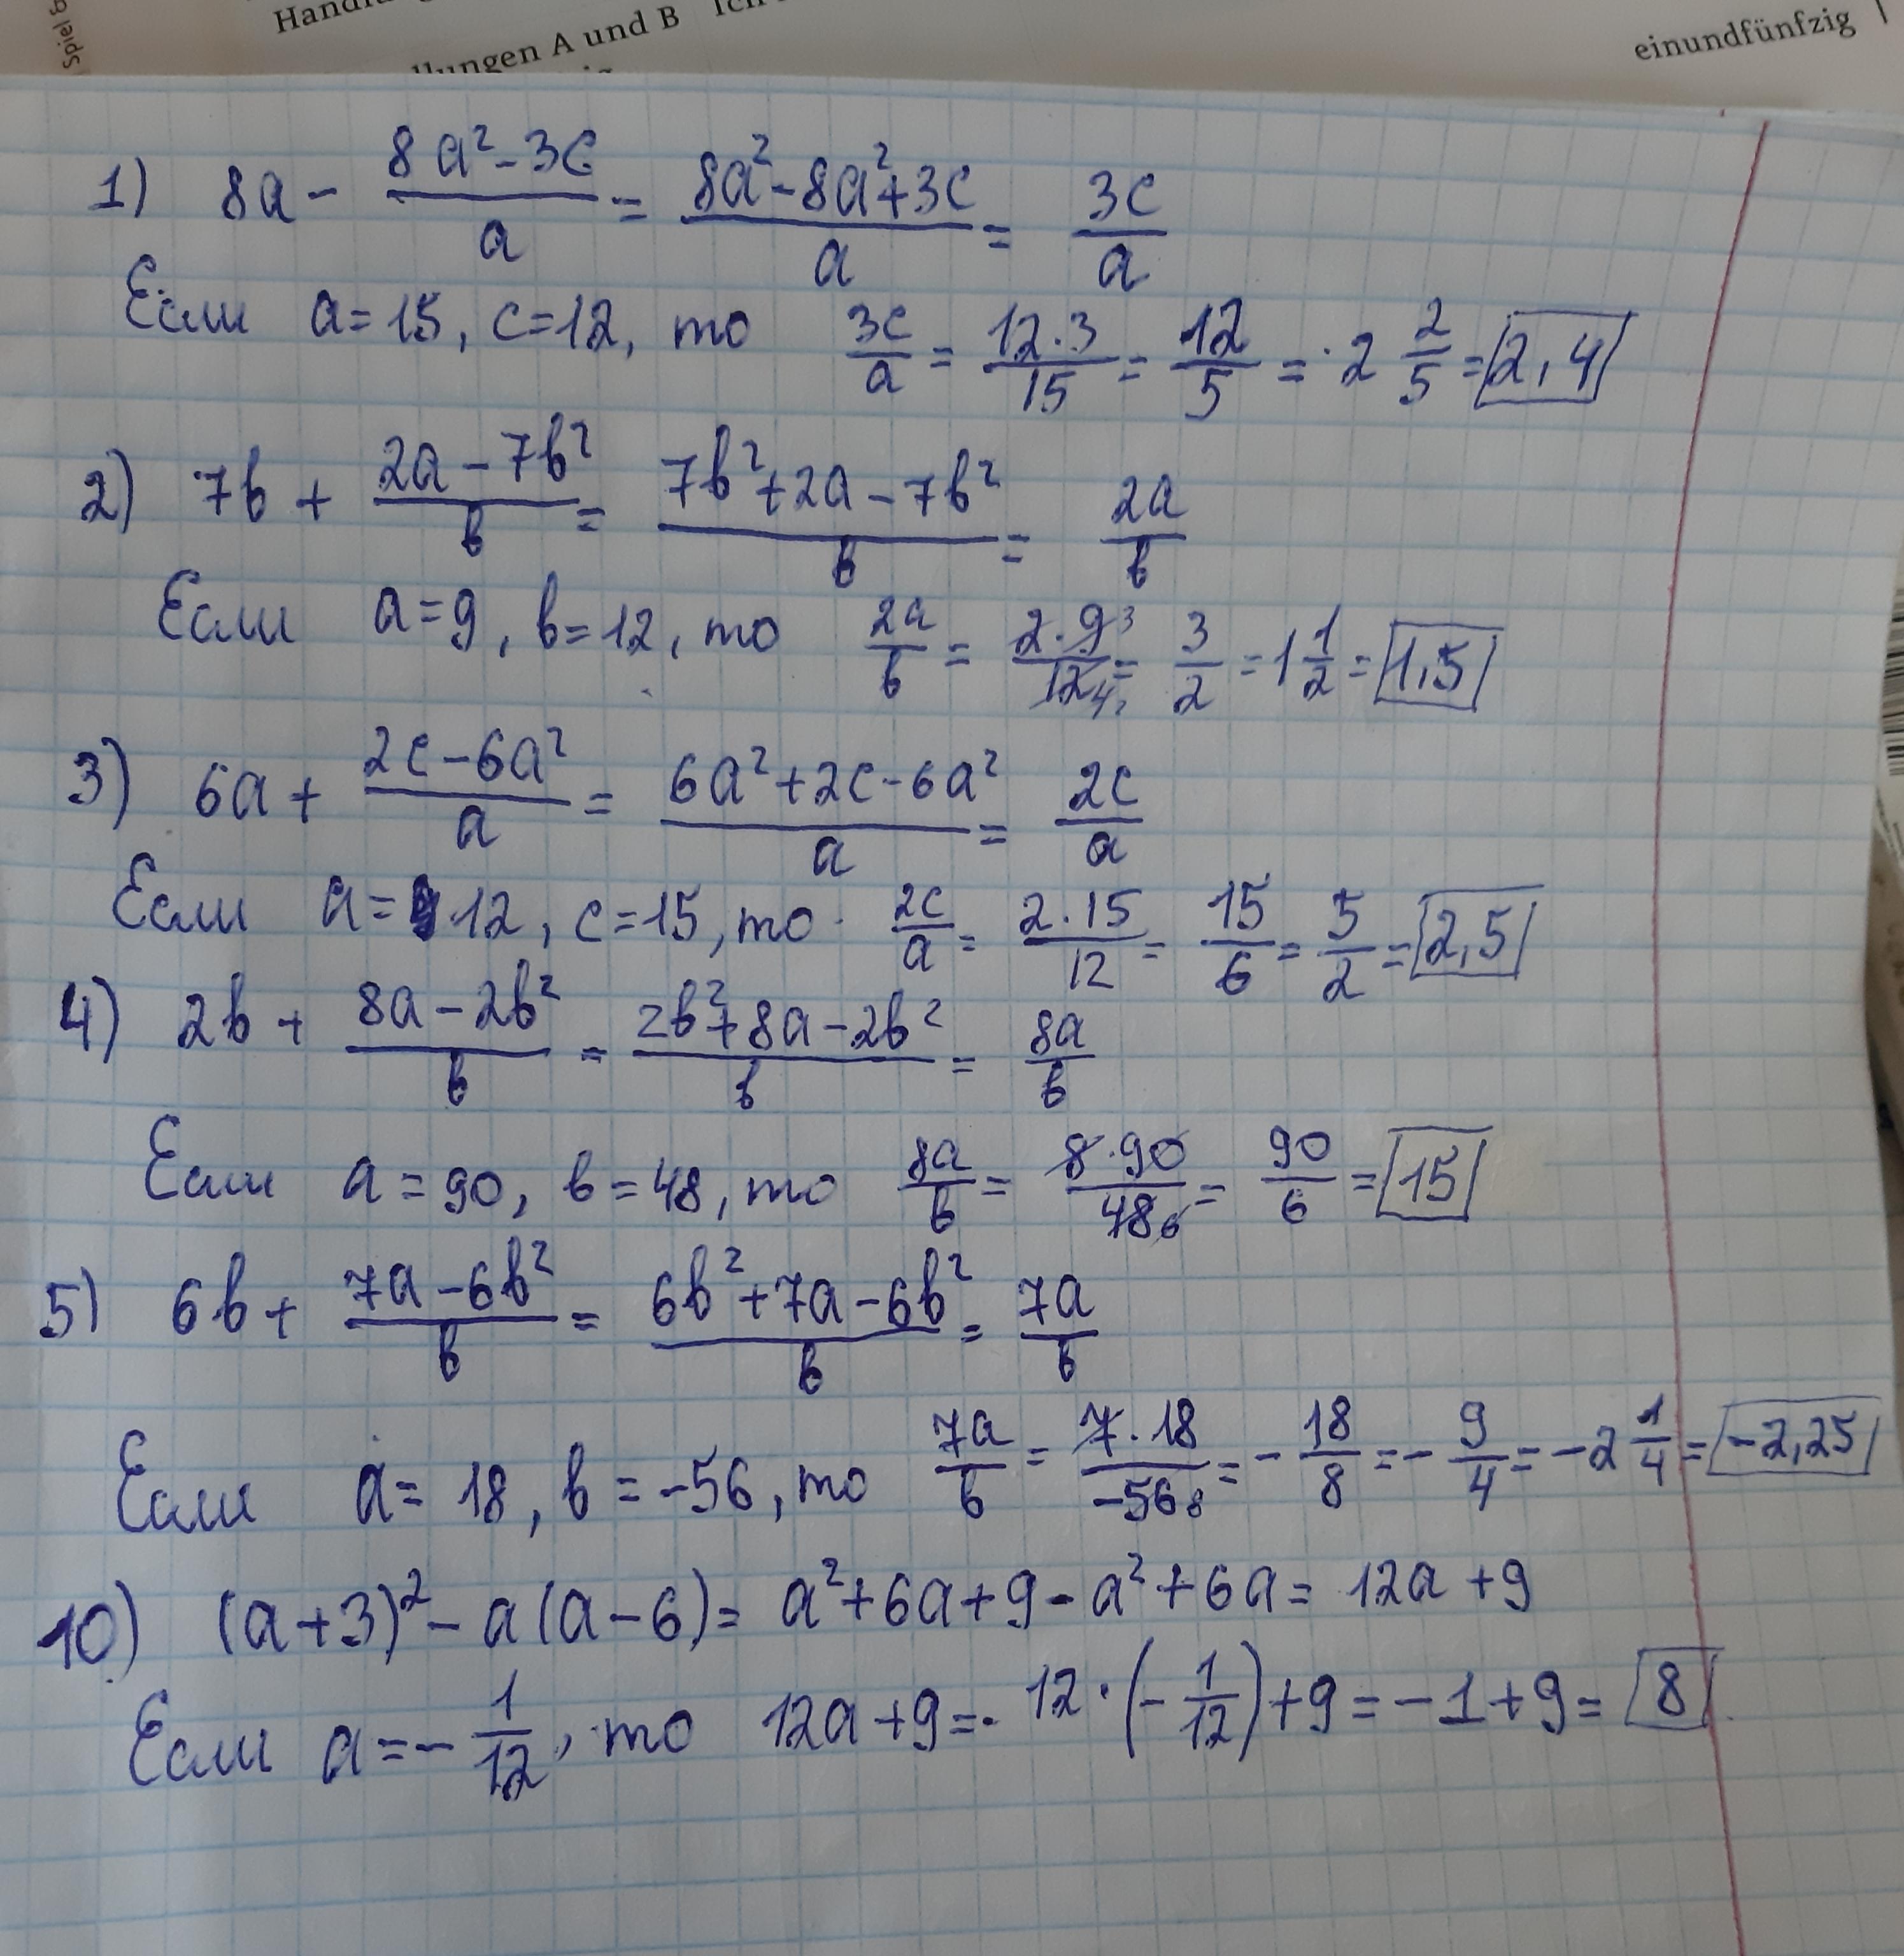 Spiel
einundfünfzig
llungen A und B
1) 8a - (8a² - 3c)/a = (8a² - 8a² + 3c)/a = 3c/a
Если a = 15, c = 12, то 3c/a = 12·3/15 = 12/5 = 2 2/5 = 2,4
2) 7b + (2a - 7b²)/b = (7b² + 2a - 7b²)/b = 2a/b
Если a = 9, b = 12, то 2a/b = 2·9³/12₄ = 3/2 = 1 1/2 = 1,5
3) 6a + (2c - 6a²)/a = (6a² + 2c - 6a²)/a = 2c/a
Если a = 12, c = 15, то 2c/a = 2·15/12 = 15/6 = 5/2 = 2,5
4) 2b + (8a - 2b²)/b = (2b² + 8a - 2b²)/b = 8a/b
Если a = 90, b = 48, то 8a/b = 8·90/48₆ = 90/6 = 15
5) 6b + (7a - 6b²)/b = (6b² + 7a - 6b²)/b = 7a/b
Если a = 18, b = -56, то 7a/b = 7·18/-56₈ = - 18/8 = - 9/4 = -2 1/4 = -2,25
10) (a+3)² - a(a-6) = a² + 6a + 9 - a² + 6a = 12a + 9
Если a = - 1/12, то 12a + 9 = 12·(- 1/12) + 9 = -1 + 9 = 8